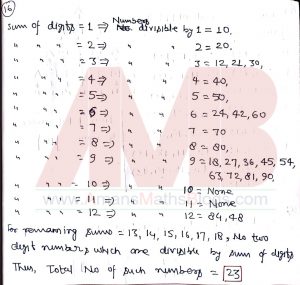 16
Sum of digits = 1 ⇒ Numbers divisible by 1 = 10.
" " " = 2 ⇒ " 2 = 20.
" " " = 3 ⇒ " 3 = 12, 21, 30,
" " " = 4 ⇒ " 4 = 40,
" " " = 5 ⇒ " 5 = 50,
" " " = 6 ⇒ " 6 = 24, 42, 60
" " " = 7 ⇒ " 7 = 70
" " " = 8 ⇒ " 8 = 80.
" " " = 9 ⇒ " 9 = 18, 27, 36, 45, 54,
63, 72, 81, 90,
" " " = 10 ⇒ " 10 = None
" " " = 11 ⇒ " 11 = None
" " " = 12 ⇒ " 12 = 84, 48
For remaining sums = 13, 14, 15, 16, 17, 18, No two
digit numbers which are divisible by sum of digits
Thus, Total No of such numbers = 23